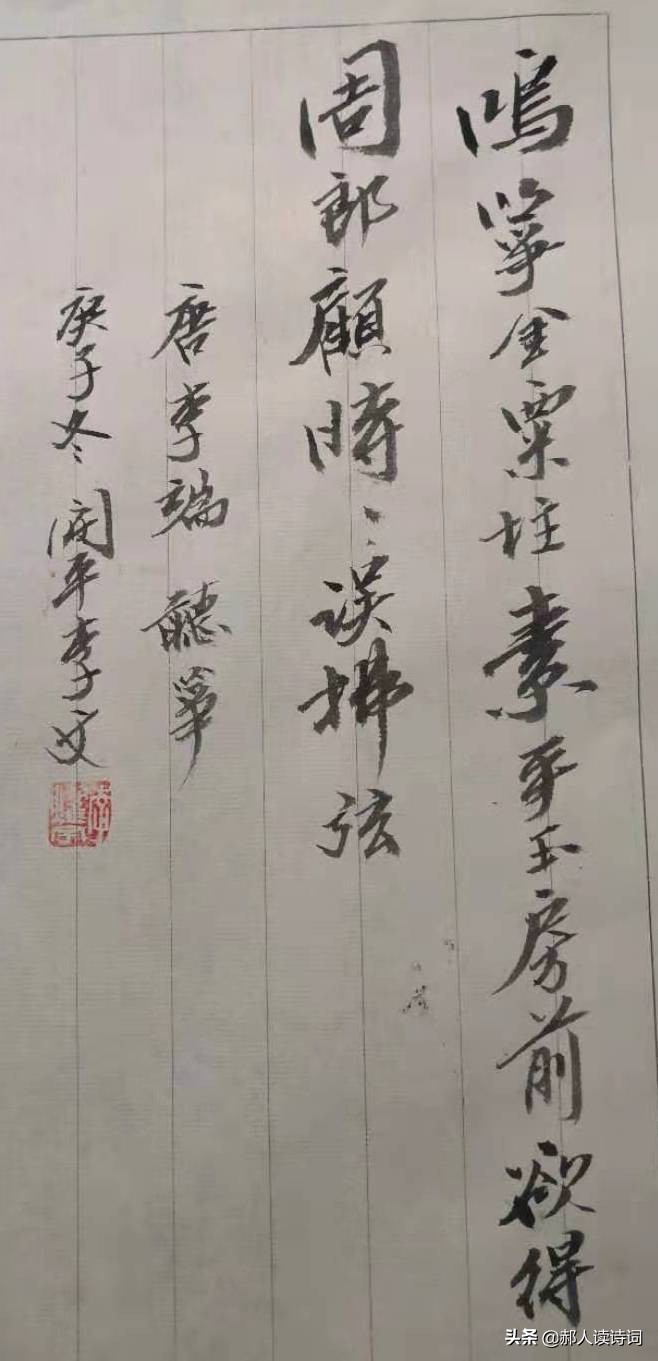 鳴箏金粟柱素手玉房前欲得
周郎顧時々誤拂弦
唐李端聽箏
庚子冬開平李文
头条 @郝人读诗词